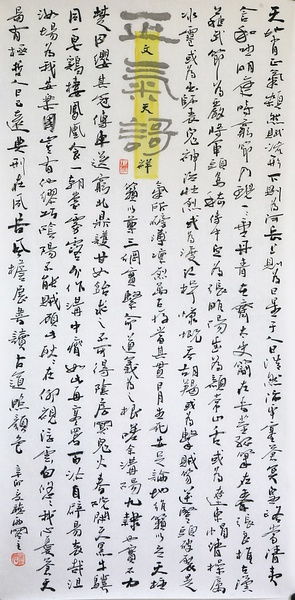 正氣謌
文天祥
天地有正氣雜然賦流形下則為河嶽上則為日星於人曰浩然沛乎塞蒼冥皇路當清夷
含和吐明庭時窮節乃見一一垂丹青在齊太史簡在晉董狐筆在秦張良椎在漢
蘇武節為嚴將軍頭為嵇侍中血為張睢陽齒為顏常山舌或為遼東帽清操厲
冰雪或為出師表鬼神泣壯烈或為渡江楫慷慨吞胡羯或為擊賊笏逆豎頭破裂是
氣所磅礴凜烈萬古存當其貫日月生死安足論地維賴以立天柱
賴以尊三綱實繫命道義為之根嗟余遘陽九隸也實不力
楚囚纓其冠傳車送窮北鼎鑊甘如飴求之不可得陰房闃鬼火春院閟天黑牛驥
同皂雞棲鳳凰食一朝蒙霧露分作溝中瘠如此再寒暑百沴自辟易哀哉沮
洳場為我安樂國豈有他繆巧陰陽不能賊顧此耿耿在仰視浮雲白悠悠我心憂蒼天
曷有極哲人日已遠典刑在夙昔風檐展書讀古道照顏色